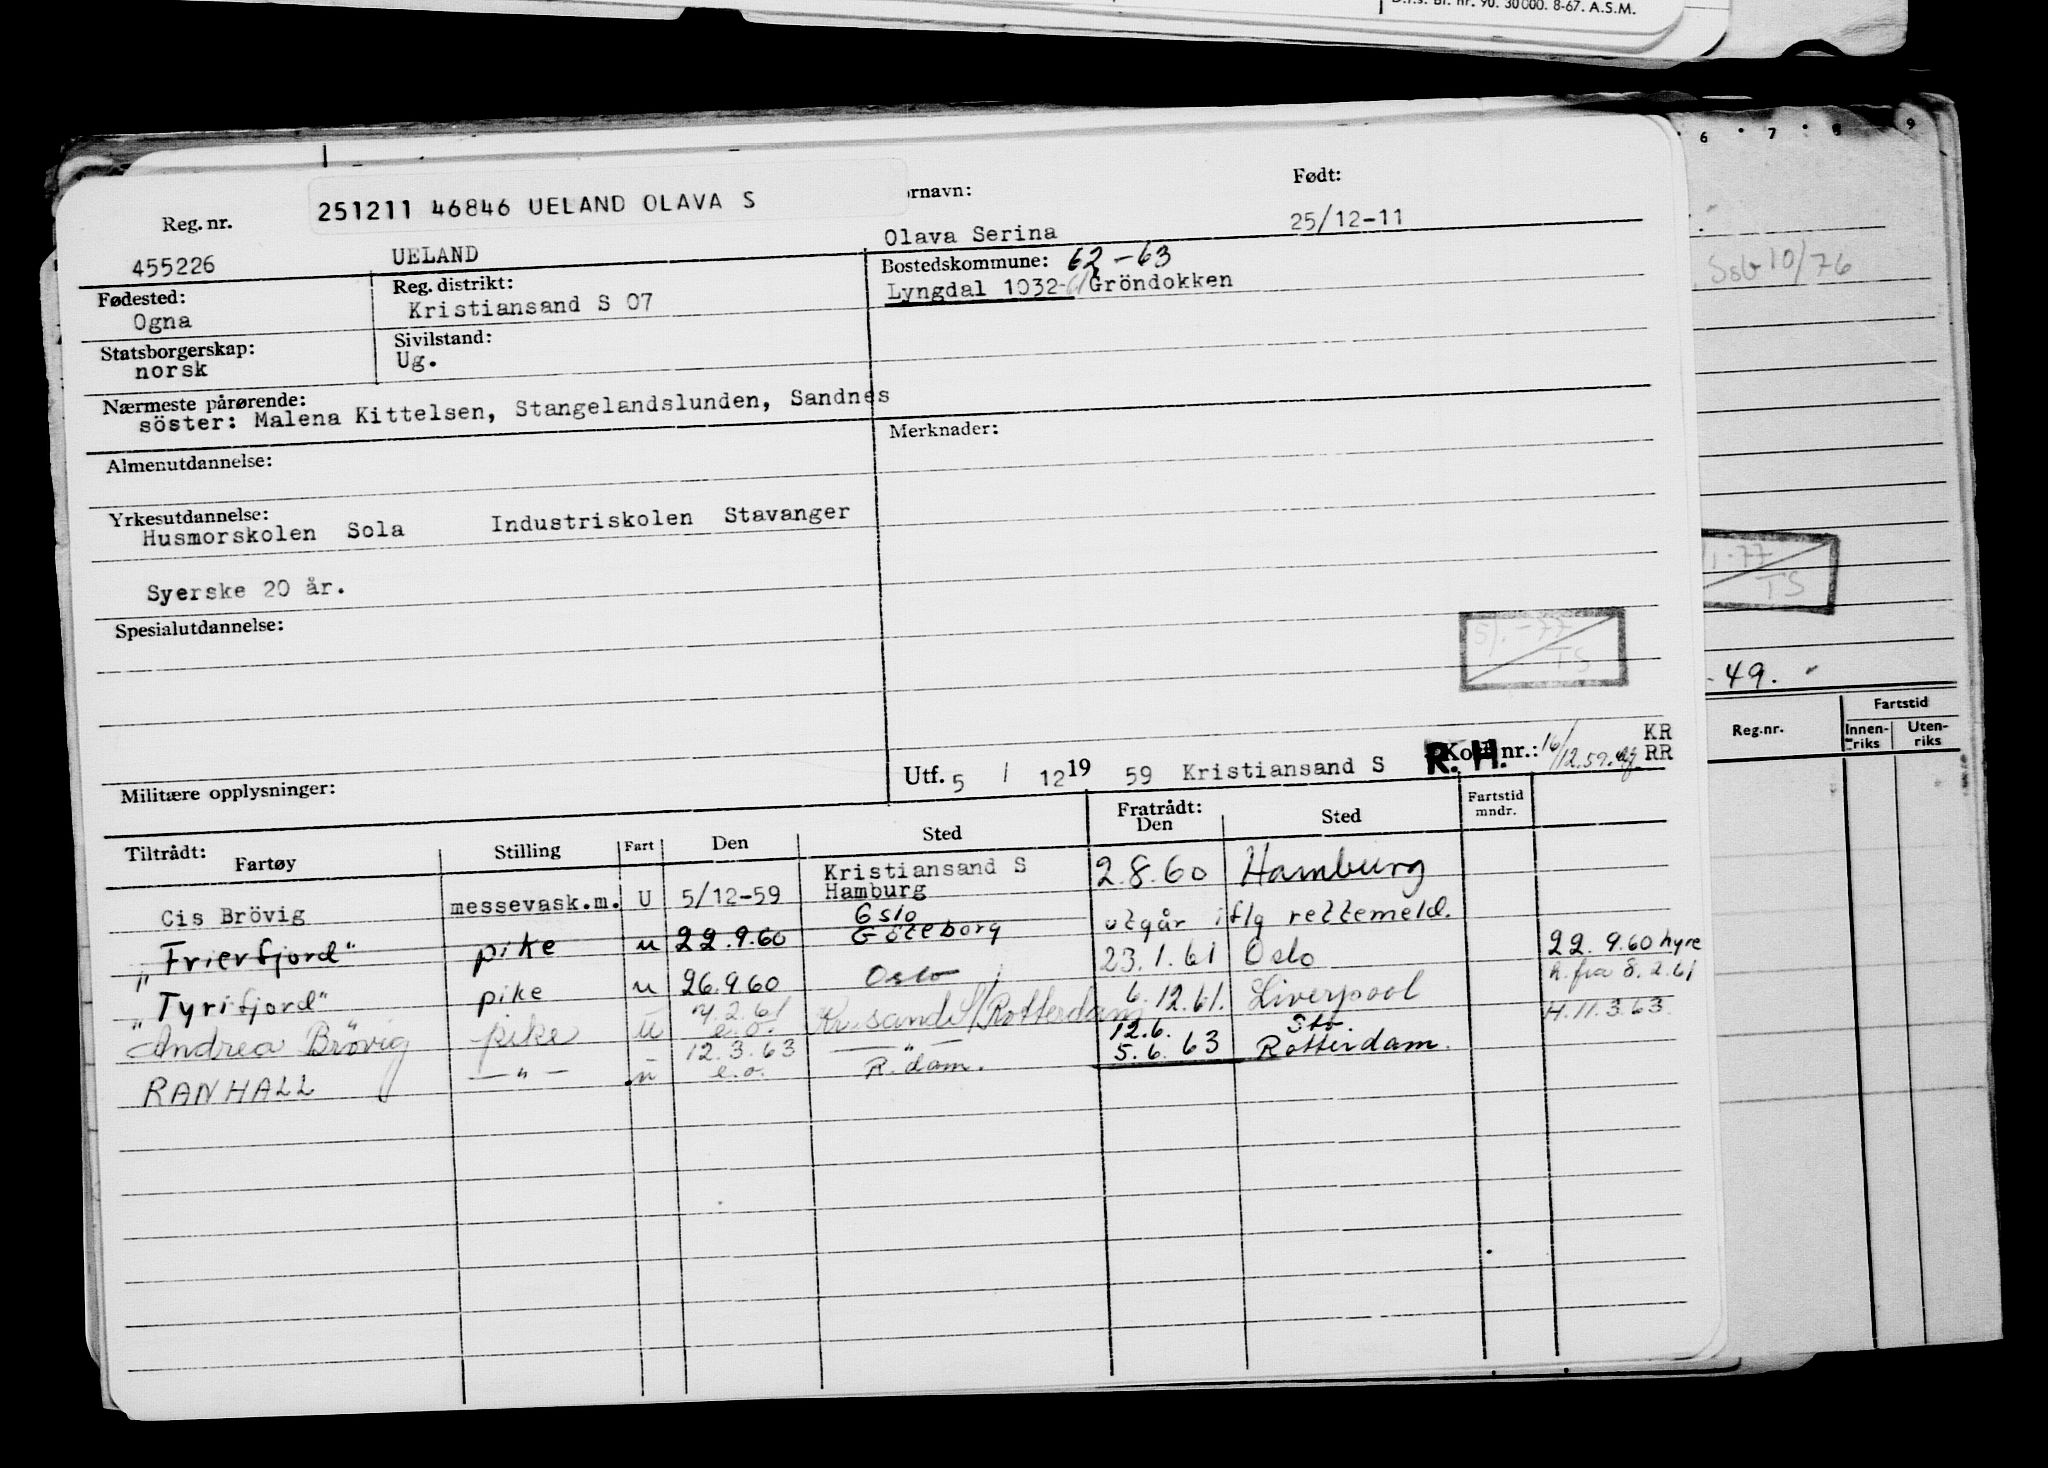 D.f.s. Bl. nr. 90. 30000. 8-67. A.S.M.
6 7 8 9
251211 46846 UELAND OLAVA S
ornavn: Født:
Reg. nr.
455226 UELAND Olava Serina 25/12-11
Fødested: Reg. distrikt: Bostedskommune: 62-63
Ogna Kristiansand S 07 Lyngdal 1032-61 Gröndokken
Statsborgerskap: Sivilstand:
norsk Ug.
Nærmeste pårørende:
söster: Malena Kittelsen, Stangelandslunden, Sandnes
Almenutdannelse: Merknader:
Yrkesutdannelse:
Husmorskolen Sola Industriskolen Stavanger
Syerske 20 år.
Spesialutdannelse:
5/1-77
TS
Militære opplysninger: Utf. 5 / 12 19 59 Kristiansand S R. H. nr.: 16/12.59. KR
RR
Tiltrådt: Fratrådt: Fartstid
Fartøy Stilling Fart Den Sted Den Sted mndr.
Cis Brövig messevask.m. U 5/12-59 Kristiansand S Hamburg 2.8.60 Hamburg
"Frierfjord" pike u 22.9.60 Oslo Göteborg utgår iflg rettemeld.
"Tyrifjord" pike u 26.9.60 Oslo 23.1.61 Oslo 22.9.60 hyre
Andrea Brövig pike u 7.2.61 e.o. Kr.sand S/Rotterdam 6.12.61. Liverpool h. fra 8.2.61
RANHALL —"— u 12.3.63 e.o. —"— R.dam. 12.6. 5.6.63 Rotterdam. H. 11.3.63
Sob 10/76
1-77
TS
-49.
Reg.nr. Fartstid
Innen-riks Uten-riks